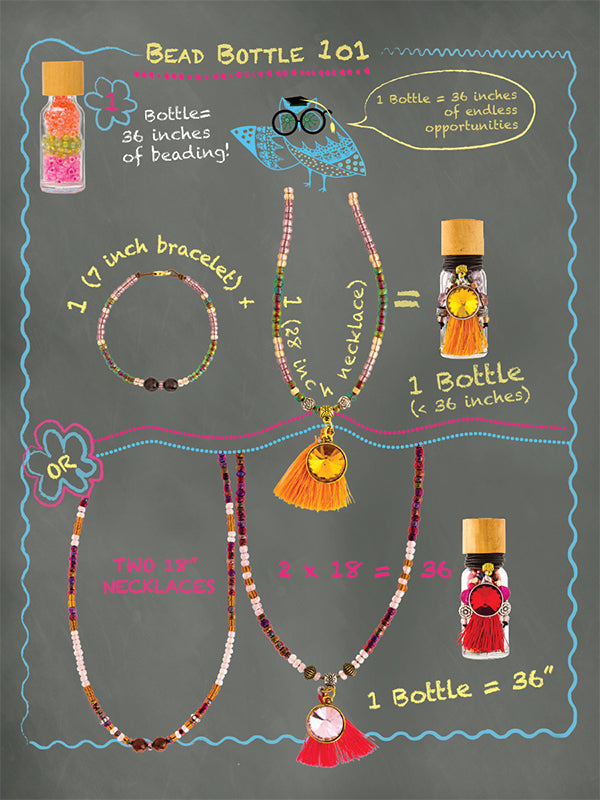 BEAD BOTTLE 101
1
Bottle=
36 inches
of beading!
1 Bottle = 36 inches
of endless
opportunities
1 (7 inch bracelet) +
1 (28 inch necklace)
=
1 Bottle
(< 36 inches)
OR
TWO 18"
NECKLACES
2 x 18 = 36
1 Bottle = 36"